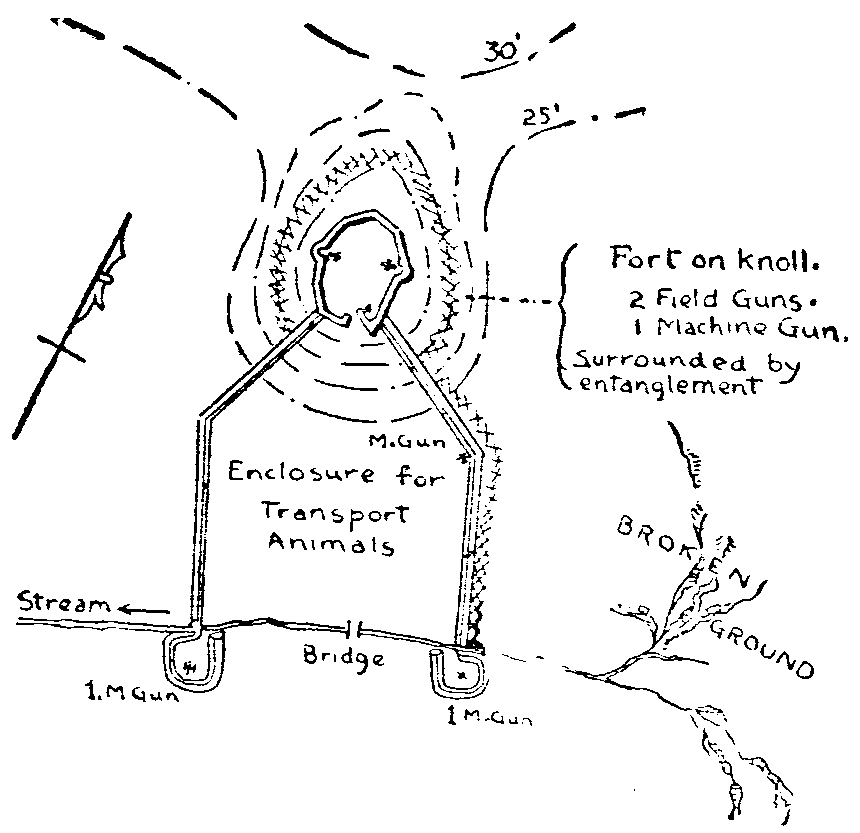 30'
25'
Fort on knoll.
2 Field Guns.
1 Machine Gun.
Surrounded by
entanglement
M.Gun
Enclosure for
Transport
Animals
BROKEN
GROUND
Stream
Bridge
1.M Gun
1 M.Gun